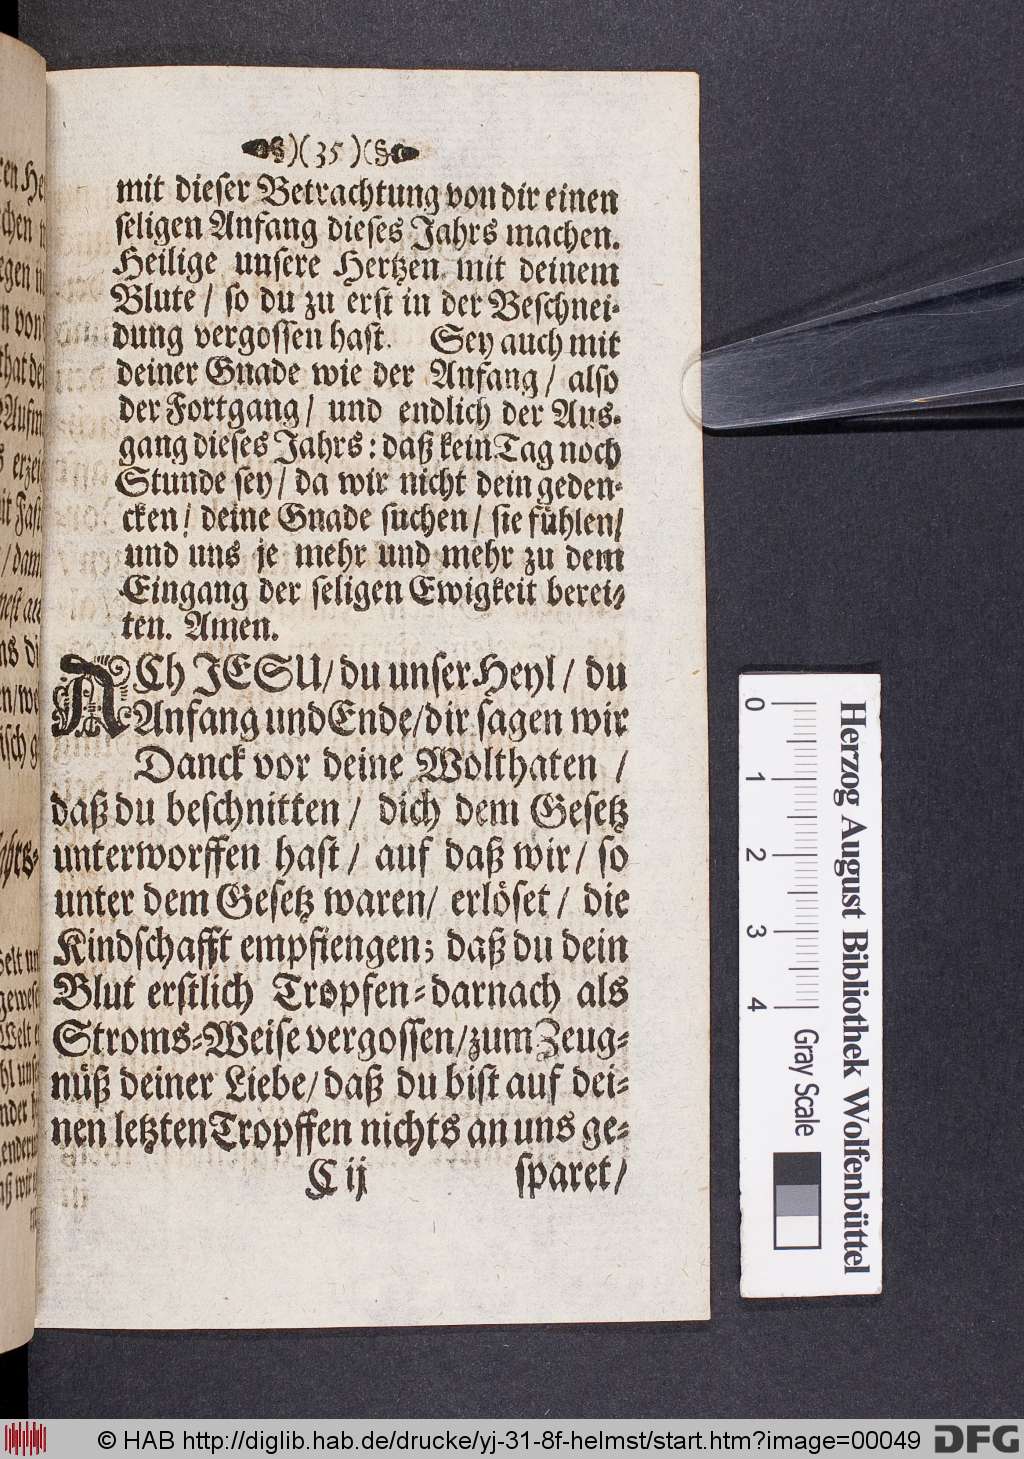 §)(35)(§
mit dieser Betrachtung von dir einen
seligen Anfang dieses Jahrs machen.
Heilige unsere Hertzen mit deinem
Blute / so du zu erst in der Beschnei-
dung vergossen hast. Sey auch mit
deiner Gnade wie der Anfang / also
der Fortgang / und endlich der Aus-
gang dieses Jahrs: daß kein Tag noch
Stunde sey / da wir nicht dein geden-
cken / deine Gnade suchen / sie fühlen /
und uns je mehr und mehr zu dem
Eingang der seligen Ewigkeit berei-
ten. Amen.
ACh JESU / du unser Heyl / du
Anfang und Ende / dir sagen wir
Danck vor deine Wolthaten /
daß du beschnitten / dich dem Gesetz
unterworffen hast / auf daß wir / so
unter dem Gesetz waren / erlöset / die
Kindschafft empfiengen; daß du dein
Blut erstlich Tropfen-darnach als
Stroms-Weise vergossen / zum Zeug-
nüß deiner Liebe / daß du bist auf dei-
nen letzten Tropffen nichts an uns ge-
C ij sparet /
Herzog August Bibliothek Wolfenbüttel
0 1 2 3 4
Gray Scale
© HAB http://diglib.hab.de/drucke/yj-31-8f-helmst/start.htm?image=00049
DFG